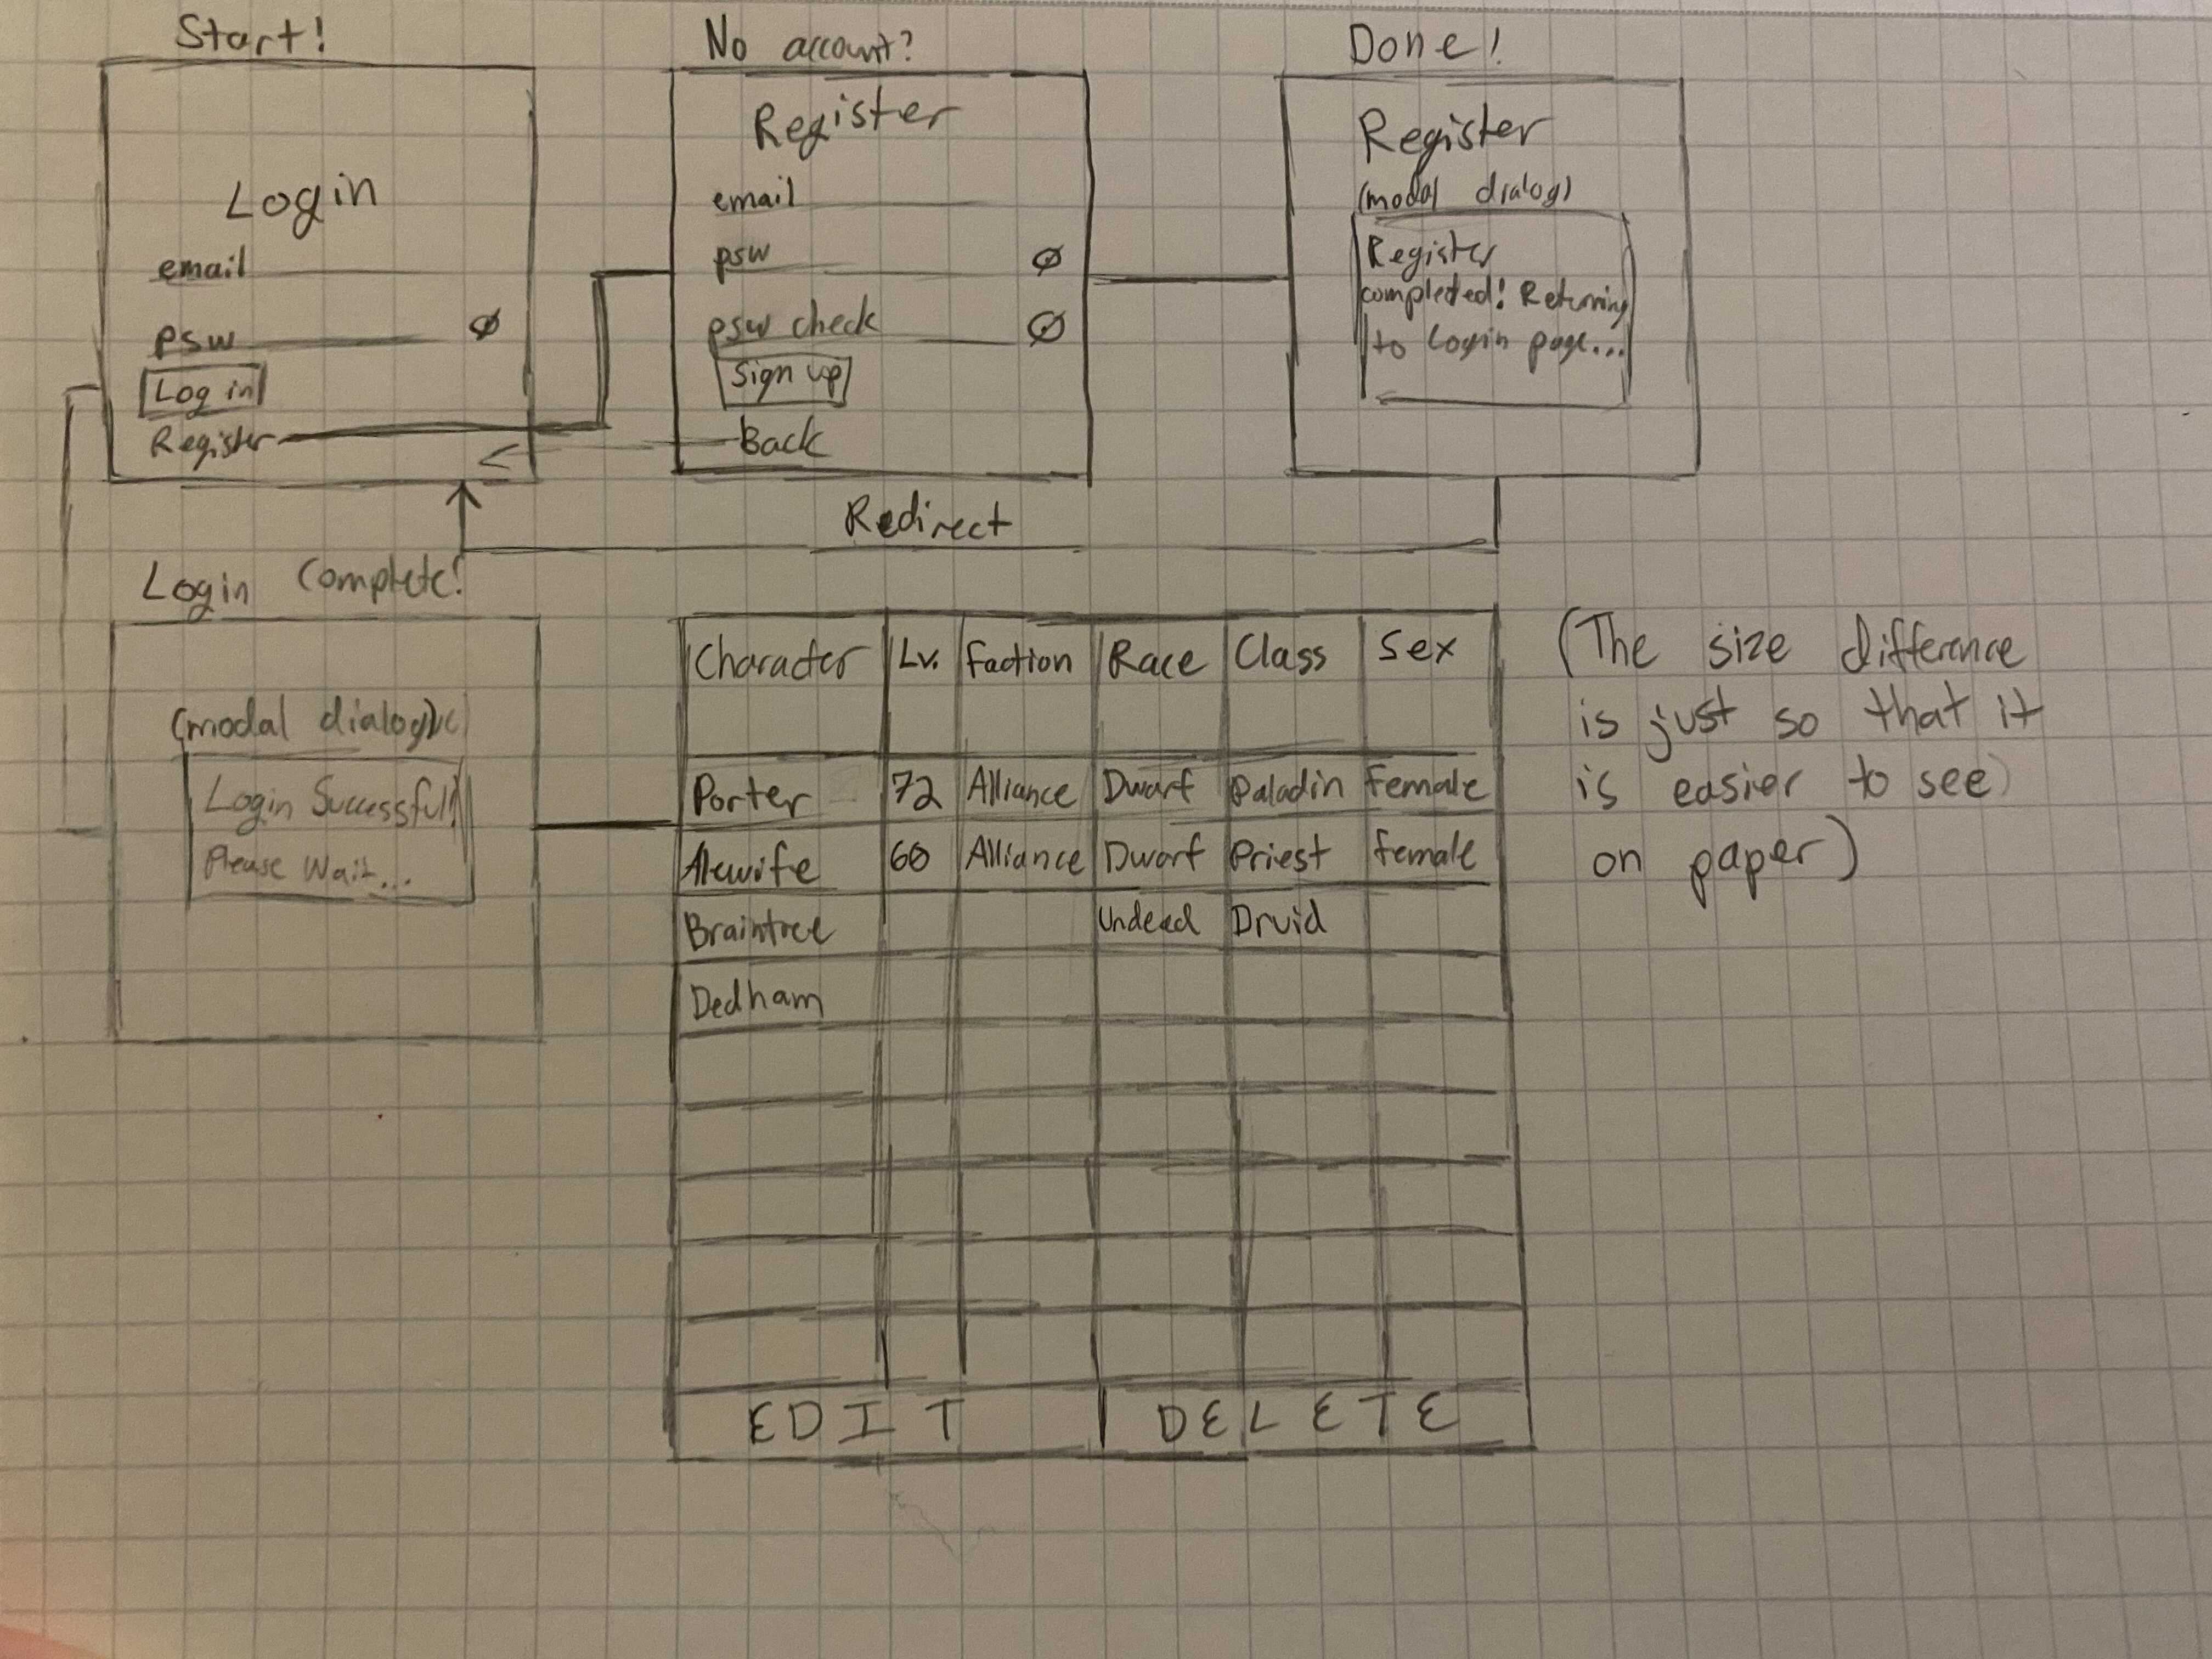 Start!
Login
email
psw
Log in
Register
No account?
Register
email
psw
psw check
Sign up
Back
Done!
Register
(modal dialog)
Register
completed! Returning
to Login page...
Redirect
Login Complete!
(modal dialog)
Login Successful!
Please Wait...
Character Lv. Faction Race Class Sex
Porter 72 Alliance Dwarf Paladin Female
Alewife 60 Alliance Dwarf Priest Female
Braintree Undead Druid
Dedham
EDIT DELETE
(The size difference
is just so that it
is easier to see
on paper)